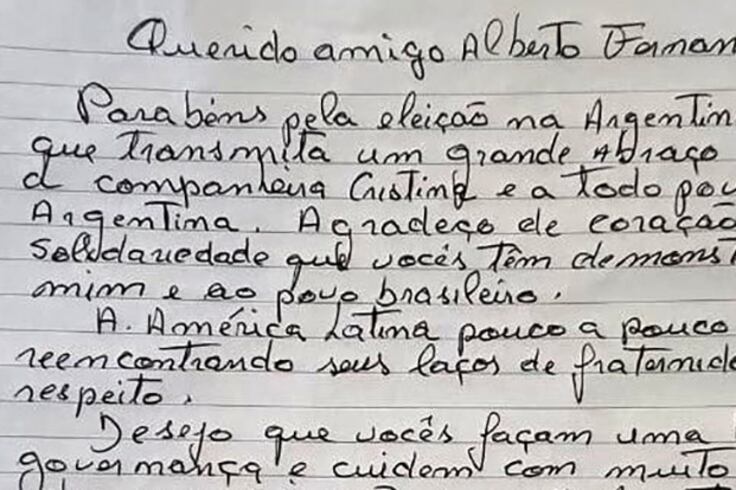 Querido amigo Alberto Fernan
Parabéns pela eleição na Argentin
que transmita um grande Abraço
a companheira Cristina e a todo pov
Argentina. Agradeço de coração
solidariedade que vocês têm demonst
mim e ao povo brasileiro.
A. América Latina pouco a pouco
reencontrando seus laços de fraternide
respeito.
Desejo que vocês façam uma
governança e cuidem com muito